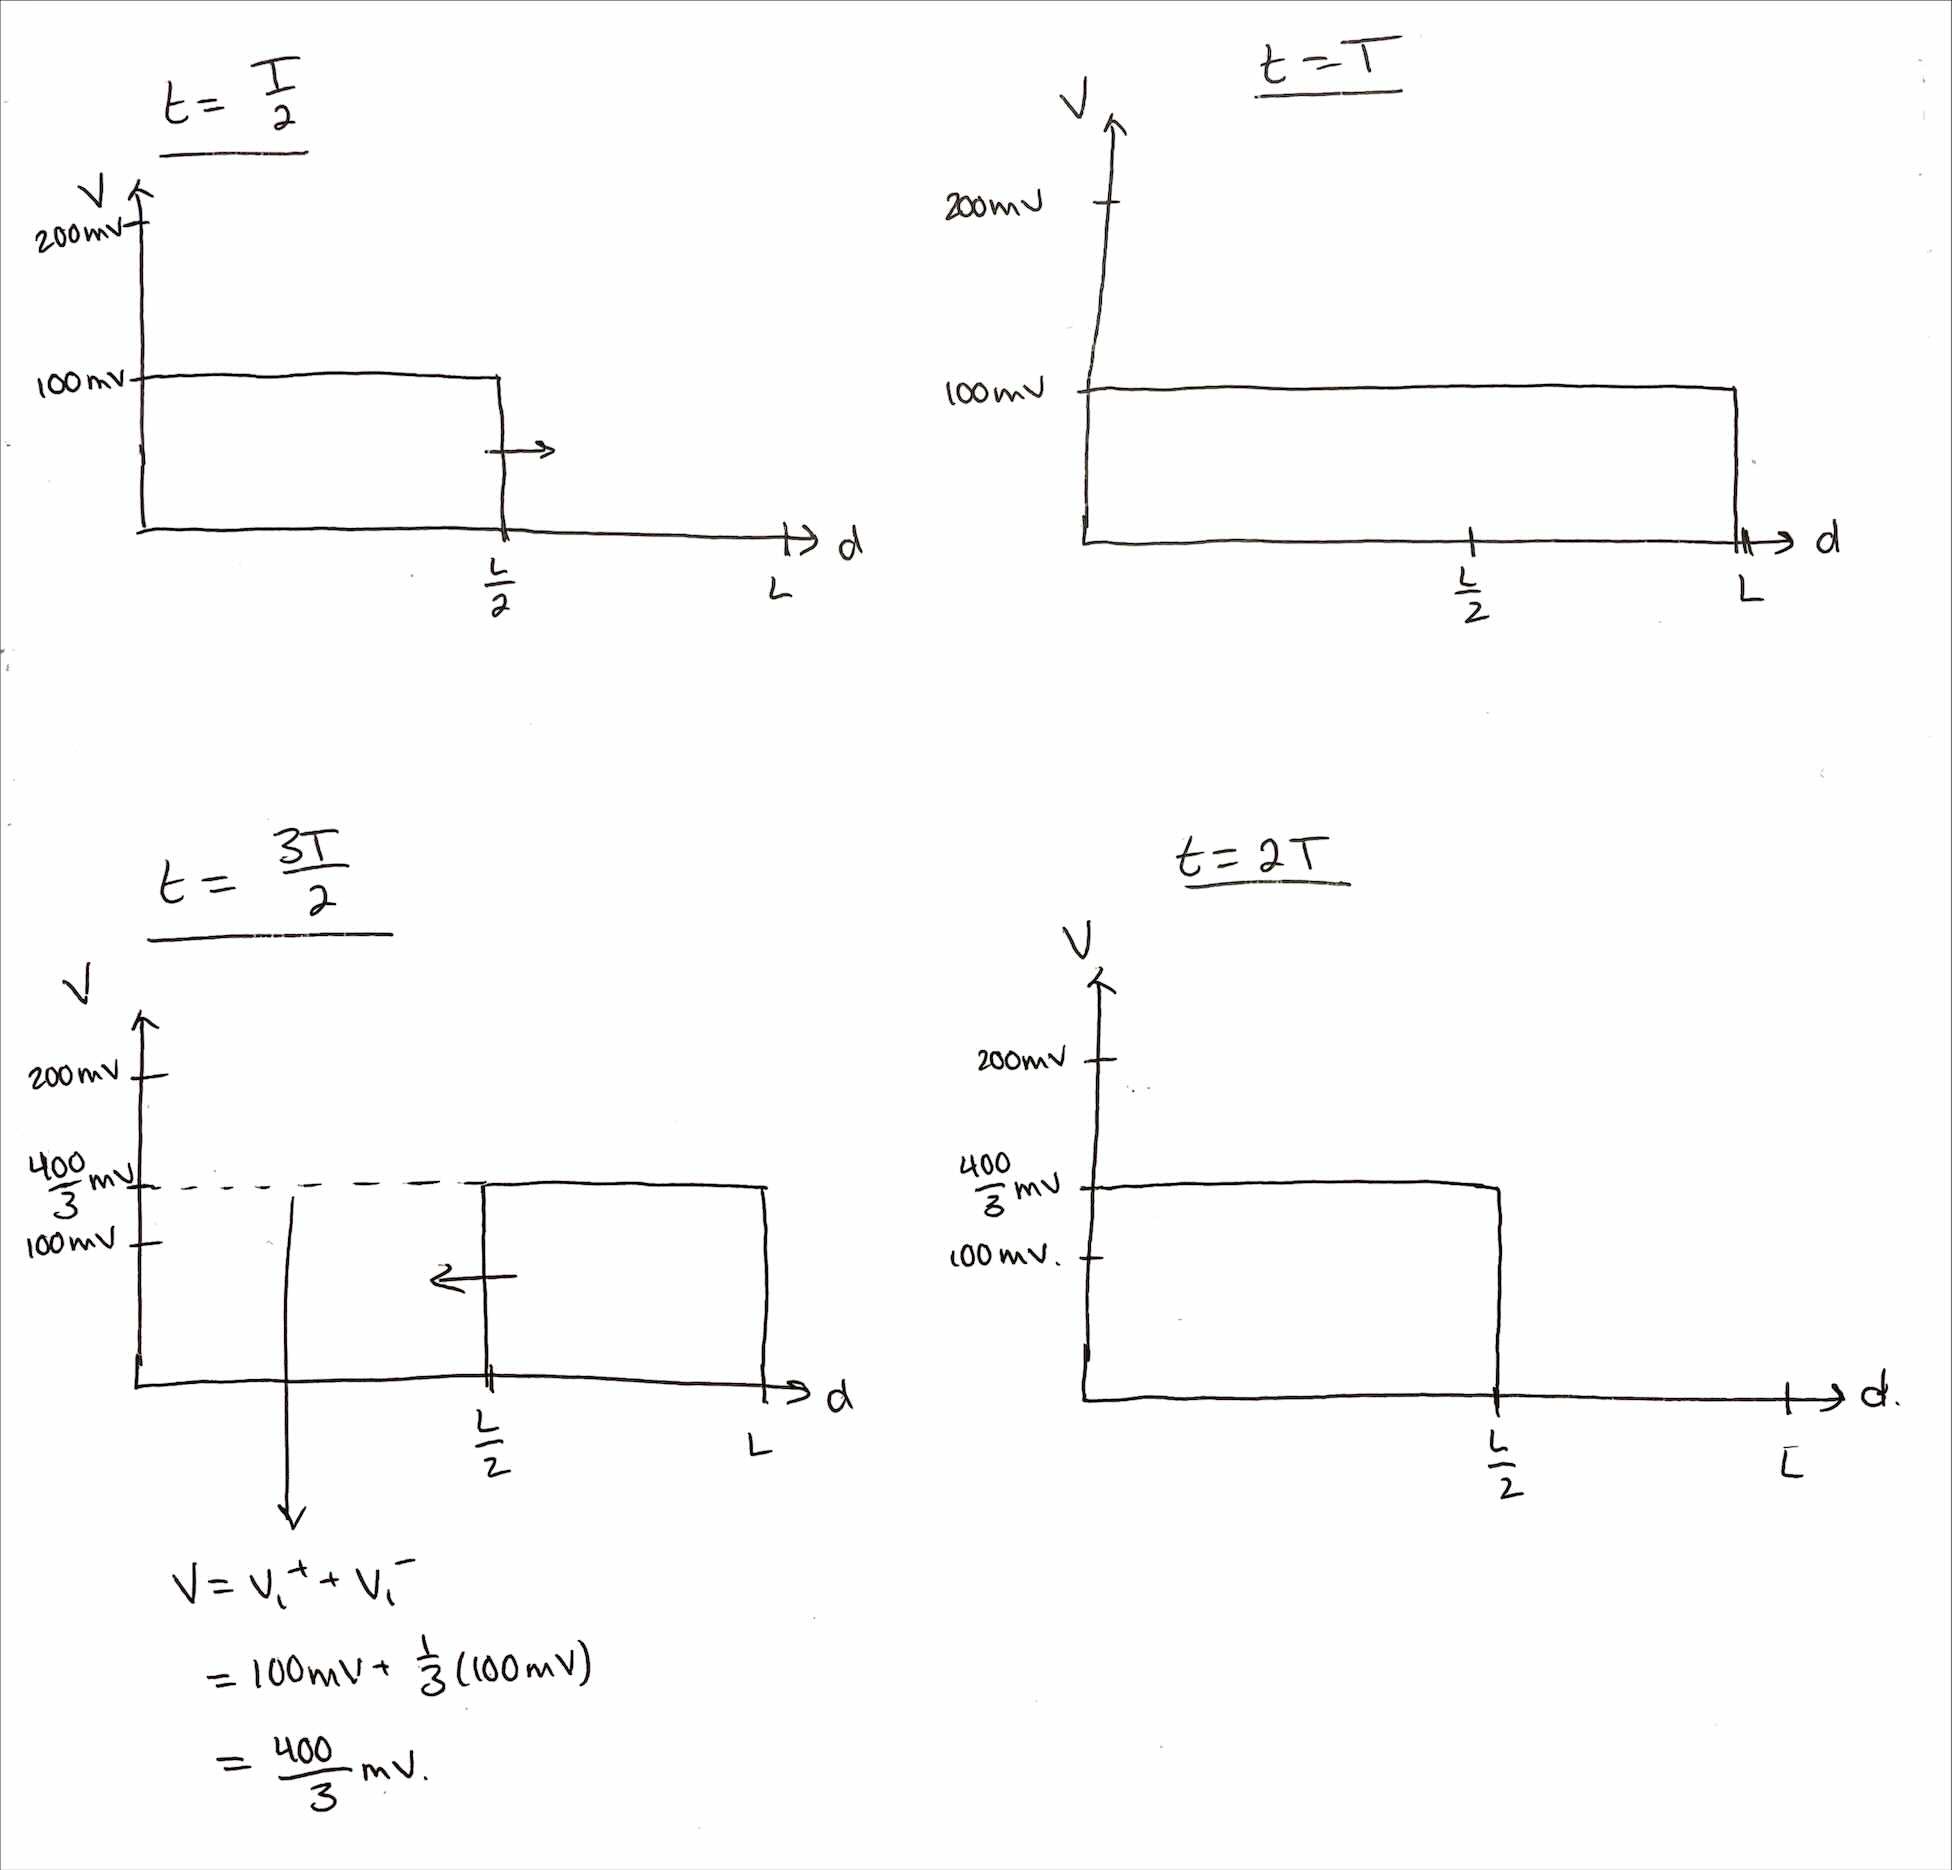 t = T/2
V
200mV
100mV
L/2
L
d
t = T
V
200mV
100mV
L/2
L
d
t = 3T/2
V
200mV
400/3 mV
100mV
L/2
L
d
V = V₁⁺ + V₁⁻
= 100mV + 1/3 (100mV)
= 400/3 mV.
t = 2T
V
200mV
400/3 mV
100mV.
L/2
L
d.